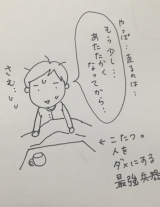 やっぱ…走るのは…
もう少し…
あたたかく
なってから…
さむ…
←こたつ。
人を
ダメにする
最強兵器